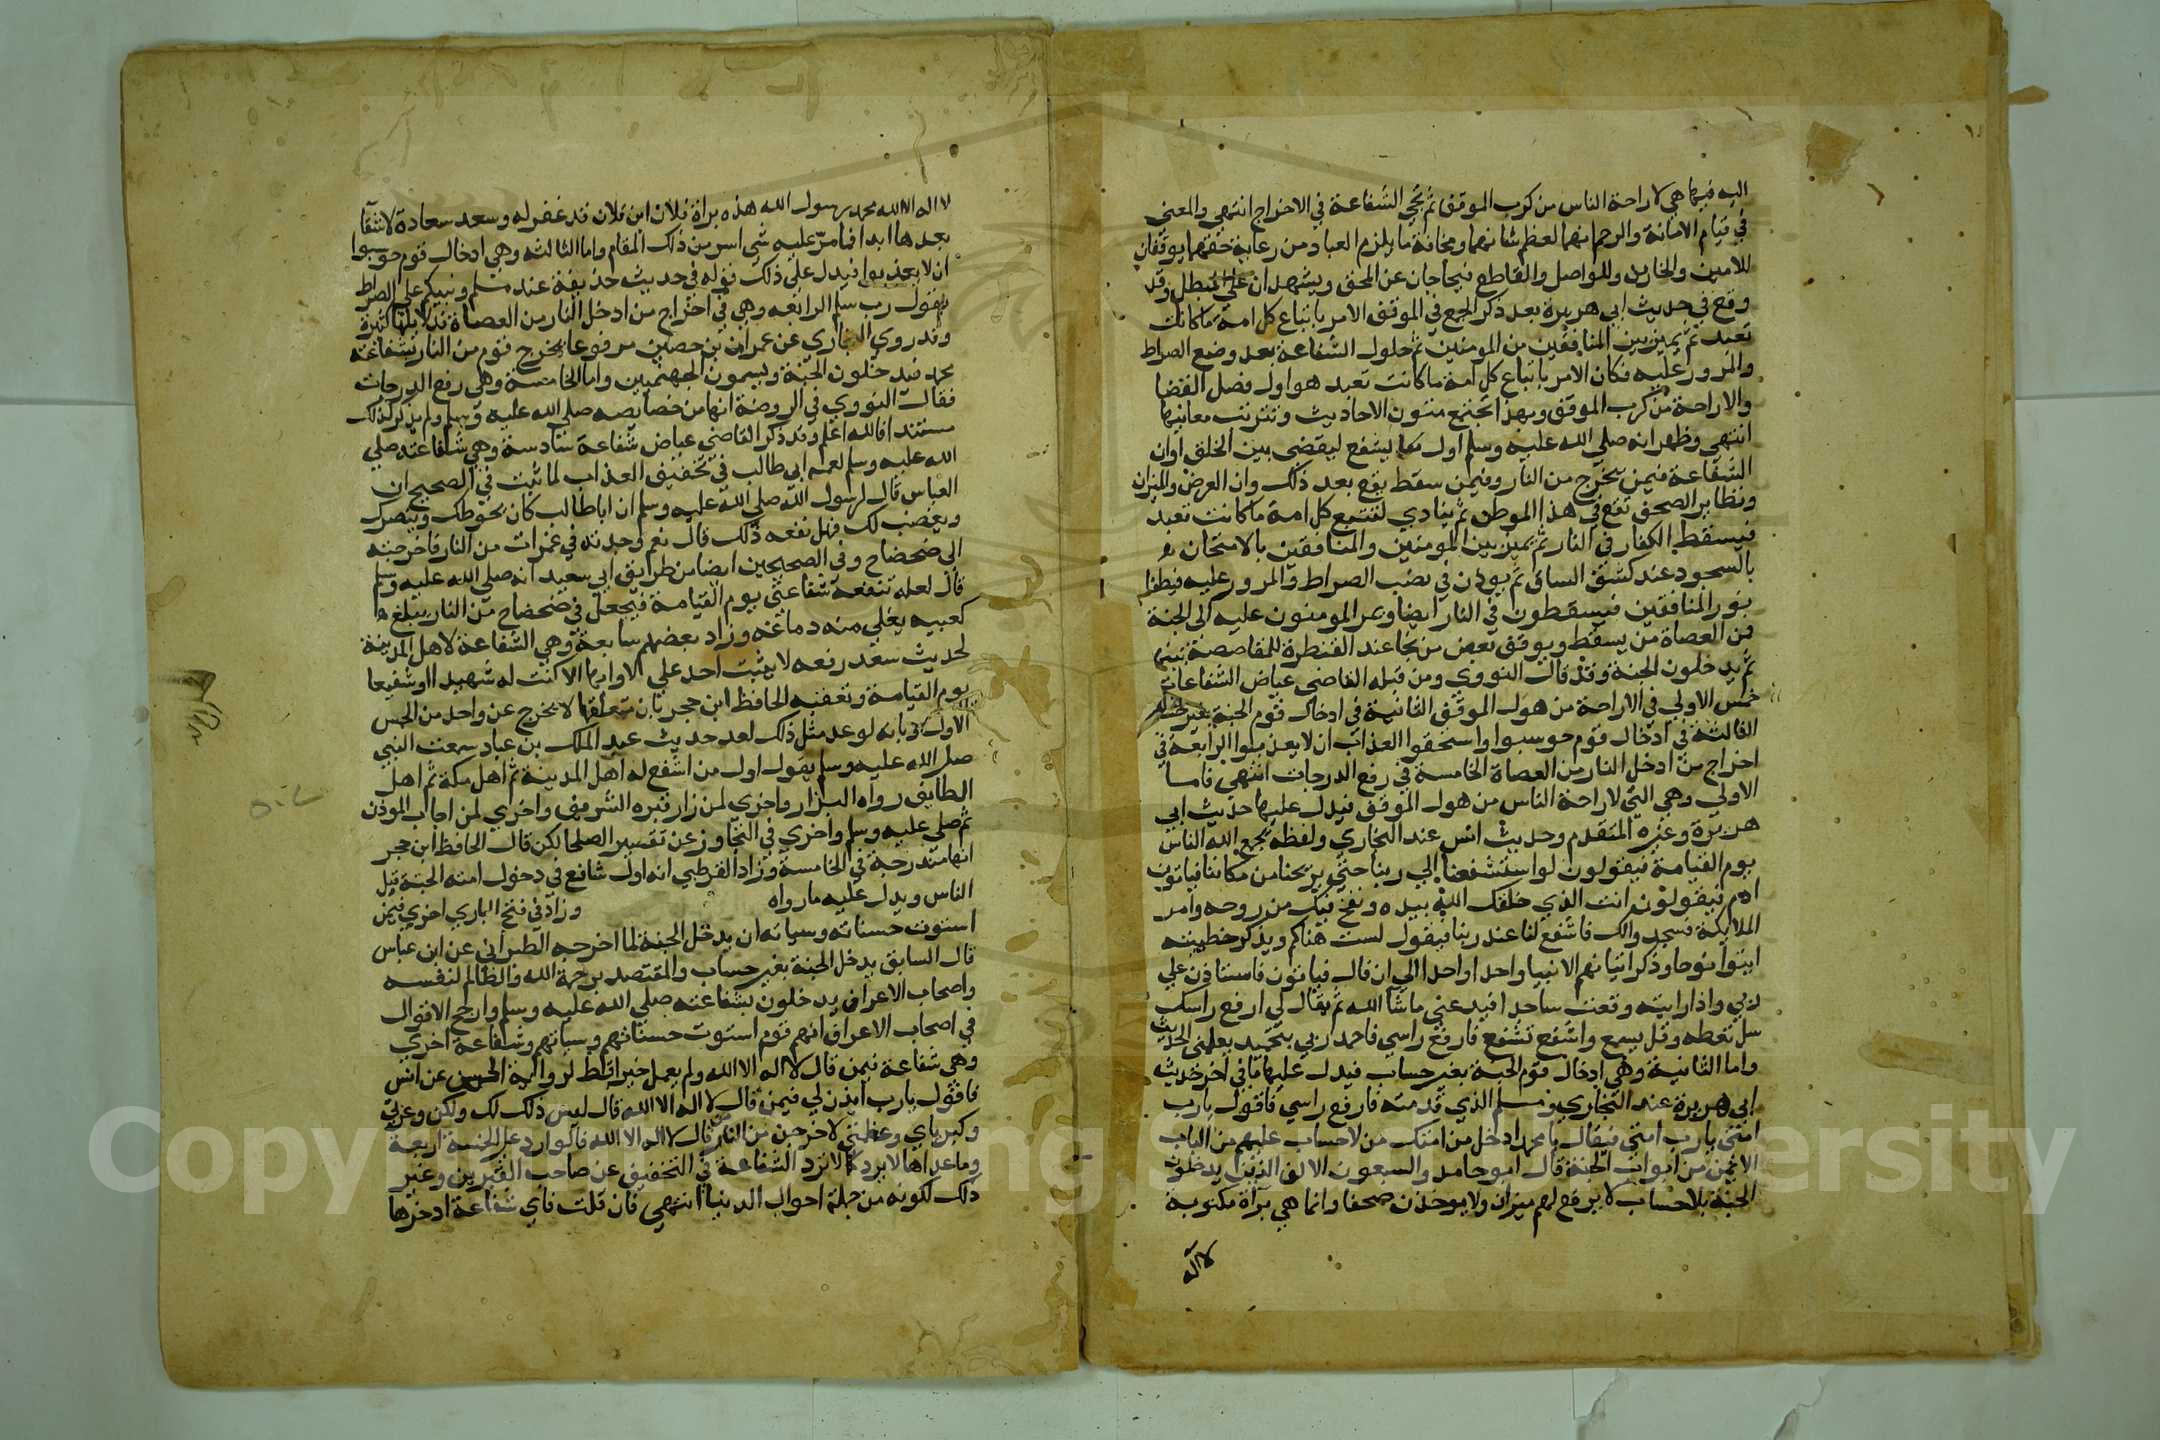 اليه فيها هي لاراحة الناس من كرب الموقف ثم تجي الشفاعة في الاخراج انتهي والمعني
في قيام الامانة والرحم انهما لعظم شانهما ومخافة ما يلزم العباد من رعاية حقهما يوقفان
للامين والخاين وللمواصل والقاطع فيحاجان عن المحق ويشهدان علي المبطل وقد
وقع في حديث ابي هريرة بعد ذكر الجمع في الموقف الامر باتباع كل امة ما كانت
تعبد ثم يميز بين المنافقين من المومنين ثم حلول الشفاعة بعد وضع الصراط
والمرور عليه فكان الامر باتباع كل امة ما كانت تعبد هو اول فصل القضا
والاراحة من كرب الموقف وبهذا تجتمع متون الاحاديث وتترتب معانيها
انتهي وظهر انه صلي الله عليه وسلم اول ما يشفع ليقضي بين الخلق اوان
الشفاعة فيمن يخرج من النار وفيمن سقط يقع بعد ذلك وان العرض والميزان
وتطاير الصحف تقع في هذا الموطن ثم ينادي لتتبع كل امة ما كانت تعبد
فيسقط الكفار في النار ثم يميز بين المومنين والمنافقين بالامتحان
بالسجود عند كشف الساق ثم يوذن في نصب الصراط والمرور عليه فيطفا
نور المنافقين فيسقطون في النار ايضا ويمر المومنون عليه الي الجنة
فمن العصاة من يسقط ويوقف بعض من نجا عند القنطرة للمقاصصة بينهم
ثم يدخلون الجنة وقد قال النووي ومن قبله القاضي عياض الشفاعات
خمس الاولي في الاراحة من هول الموقف الثانية في ادخال قوم الجنة بغير حساب
الثالثة في ادخال قوم حوسبوا واستحقوا العذاب ان لا يعذبوا الرابعة في
اخراج من ادخل النار من العصاة الخامسة في رفع الدرجات انتهي فاما
الاولي وهي التي لاراحة الناس من هول الموقف فيدل عليها حديث ابي
هريرة وغيره المتقدم وحديث انس عند البخاري ولفظه يجمع الله الناس
يوم القيامة فيقولون لو استشفعنا الي ربنا حتي يريحنا من مكاننا فياتون
ادم فيقولون انت الذي خلقك الله بيده ونفخ فيك من روحه وامر
الملايكة فسجدوا لك فاشفع لنا عند ربنا فيقول لست هناكم ويذكر خطيئته
ايتوا نوحا وذكر اتيانهم الانبيا واحدا واحدا الي ان قال فياتون فاستاذن علي
ربي واذا رايته وقعت ساجدا فيدعني ما شا الله ثم يقال لي ارفع راسك
سل تعطه وقل يسمع واشفع تشفع فارفع راسي فاحمد ربي بتحميد يعلمني الحديث
واما الثانية وهي ادخال قوم الجنة بغير حساب فيدل عليها ما في اخر حديث
ابي هريرة عند البخاري ومسلم الذي قدمته فارفع راسي فاقول يا رب
امتي يا رب امتي فيقال يا محمد ادخل من امتك من لا حساب عليهم من الباب
الايمن من ابواب الجنة قال ابو حامد والسبعون الالف الذين يدخلون
الجنة بلا حساب لا يرفع لهم ميزان ولا يوخذون صحفا وانما هي براة مكتوبة
لا اله
لا اله الا الله محمد رسول الله هذه براة فلان ابن فلان قد غفر له وسعد سعادة لا شقا
بعدها ابدا فما مر عليه شي اسر من ذلك المقام واما الثالثة وهي ادخال قوم حوسبوا
ان لا يعذبوا فيدل علي ذلك قوله في حديث حذيفة عند مسلم ونبيكم علي الصراط
يقول رب سلم الرابعة وهي في اخراج من ادخل النار من العصاة فدلايلها كثيرة
وقد روي البخاري عن عمران بن حصين مرفوعا يخرج قوم من النار بشفاعة
محمد فيدخلون الجنة ويسمون الجهنميين واما الخامسة وهي رفع الدرجات
فقال النووي في الروضة انها من خصايصه صلي الله عليه وسلم ولم يذكر لذلك
مستندا فالله اعلم وقد ذكر القاضي عياض شفاعة سادسة وهي شفاعته صلي
الله عليه وسلم لعمه ابي طالب في تخفيف العذاب لما ثبت في الصحيح ان
العباس قال لرسول الله صلي الله عليه وسلم ان ابا طالب كان يحوطك وينصرك
ويغضب لك فهل نفعه ذلك قال نعم وجدته في غمرات من النار فاخرجته
الي ضحضاح وفي الصحيحين ايضا من طريق ابي سعيد انه صلي الله عليه وسلم
قال لعله تنفعه شفاعتي يوم القيامة فيجعل في ضحضاح من النار يبلغ
كعبيه يغلي منه دماغه وزاد بعضهم سابعة وهي الشفاعة لاهل المدينة
لحديث سعد رفعه لا يثبت احد علي لاوايها الا كنت له شهيدا او شفيعا
يوم القيامة وتعقبه الحافظ ابن حجر بان متعلقها لا يخرج عن واحد من الخمس
الاول وبانه لو عد مثل ذلك لعد حديث عبد الملك بن عباد سمعت النبي
صلي الله عليه وسلم يقول اول من اشفع له اهل المدينة ثم اهل مكة ثم اهل
الطايف رواه البزار واخري لمن زار قبره الشريف واخري لمن اجاب الموذن
ثم صلي عليه وسلم واخري في التجاوز عن تقصير الصلحا لكن قال الحافظ ابن حجر
انها مندرجة في الخامسة وزاد القرطبي انه اول شافع في دخول امته الجنة قبل
الناس ويدل عليه ما رواه وزاد في فتح الباري اخري فيمن
استوت حسناته وسياته ان يدخل الجنة لما اخرجه الطبراني عن ابن عباس
قال السابق يدخل الجنة بغير حساب والمقتصد برحمة الله والظالم لنفسه
واصحاب الاعراف يدخلون بشفاعته صلي الله عليه وسلم وارجح الاقوال
في اصحاب الاعراف انهم قوم استوت حسناتهم وسياتهم وشفاعة اخري
وهي شفاعة فيمن قال لا اله الا الله ولم يعمل خيرا قط لرواية الحسن عن انس
فاقول يا رب ايذن لي فيمن قال لا اله الا الله قال ليس ذلك لك ولكن وعزتي
وكبرياي وعظمتي لاخرجن من النار من قال لا اله الا الله فالوارد علي الخمسة اربعة
وما عداها لا يرد كما لا ترد الشفاعة في التخفيف عن صاحب القبرين وغير
ذلك لكونه من جملة احوال الدنيا انتهي فان قلت فاي شفاعة ادخرها
Copy King S ersity